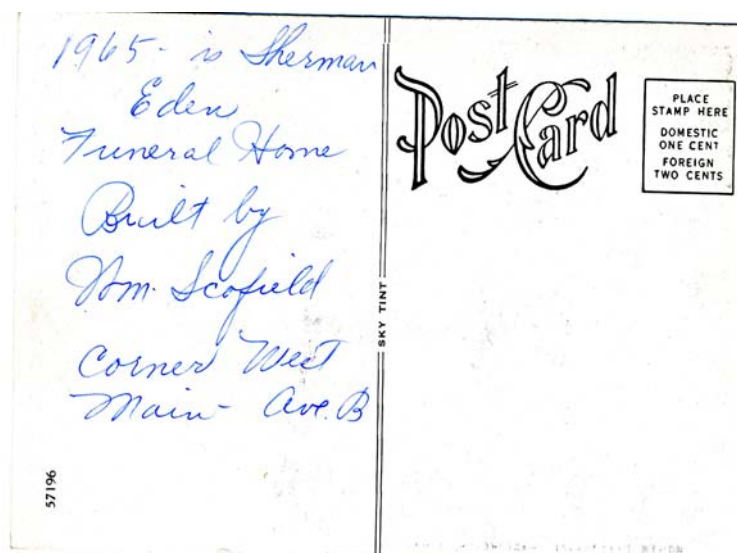 1965 - is Sherman
Eden
Funeral Home
Built by
Wm. Scofield
Corner West
Main - Ave. B
Post Card
PLACE
STAMP HERE
DOMESTIC
ONE CENT
FOREIGN
TWO CENTS
SKY TINT
57196